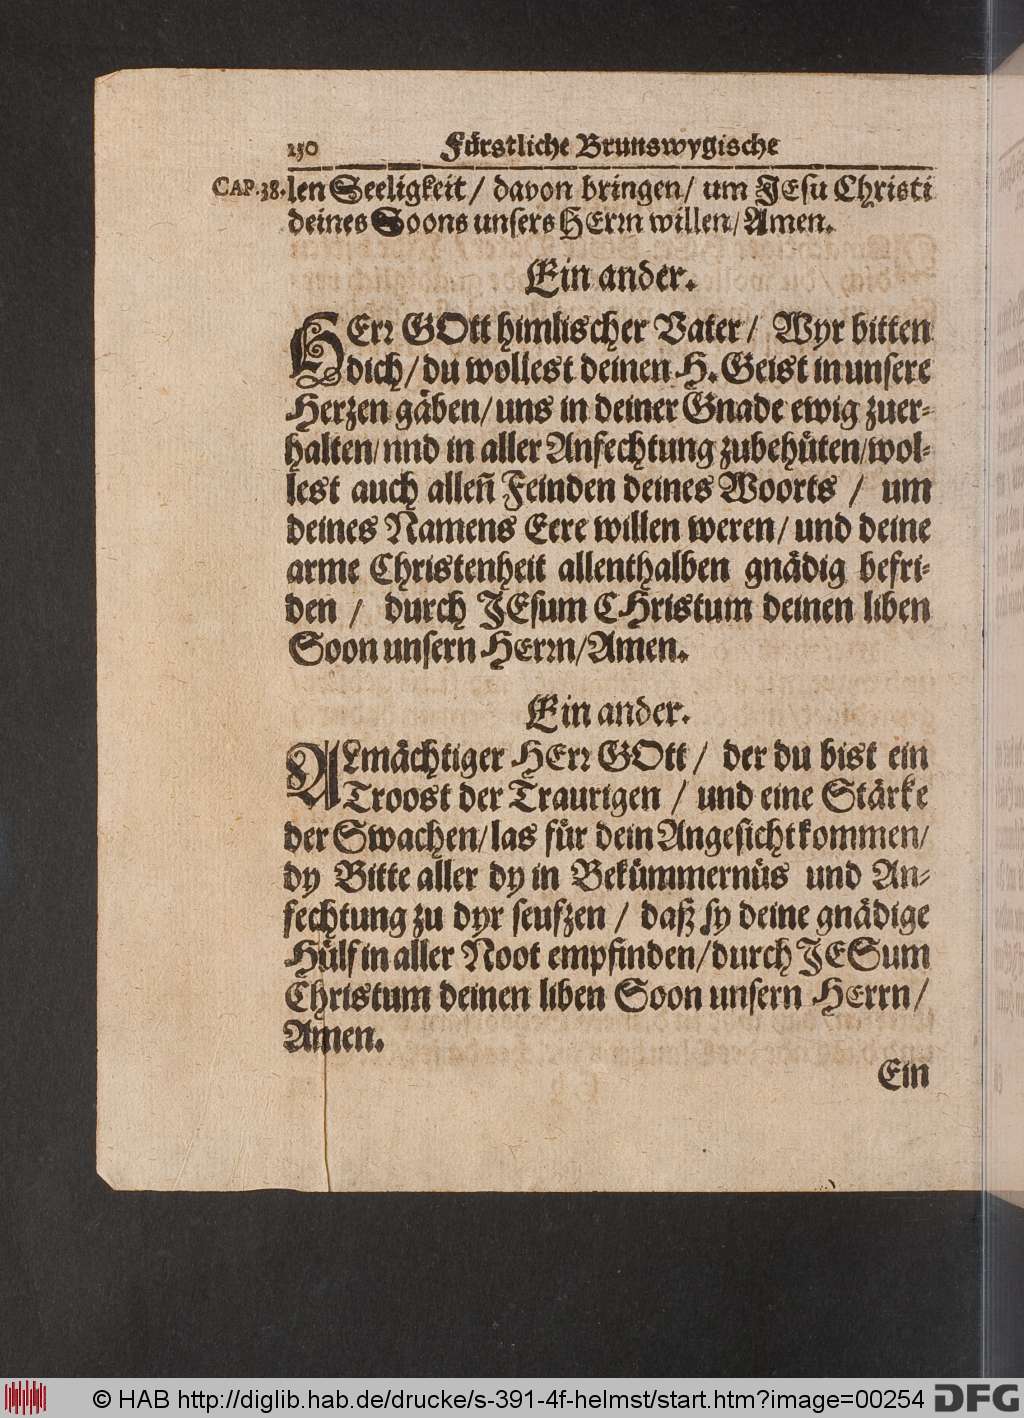 150 Fürstliche Brunswygische
CAP. 38. len Seeligkeit / davon bringen / um JEsu Christi
deines Soons unsers HErrn willen / Amen.
Ein ander.
HErr GOtt himlischer Vater / Wyr bitten
dich / du wollest deinen H. Geist in unsere
Herzen gäben / uns in deiner Gnade ewig zuer-
halten / nnd in aller Anfechtung zubehüten / wol-
lest auch alleñ Feinden deines Woorts / um
deines Namens Eere willen weren / und deine
arme Christenheit allenthalben gnädig befri-
den / durch JEsum CHristum deinen liben
Soon unsern HErrn / Amen.
Ein ander.
ALmächtiger HErr GOtt / der du bist ein
Troost der Traurigen / und eine Stärke
der Swachen / las für dein Angesicht kommen /
dy Bitte aller dy in Bekümmernüs und An-
fechtung zu dyr seufzen / daß sy deine gnädige
Hülf in aller Noot empfinden / durch JESum
Christum deinen liben Soon unsern HErrn /
Amen.
Ein
© HAB http://diglib.hab.de/drucke/s-391-4f-helmst/start.htm?image=00254 DFG